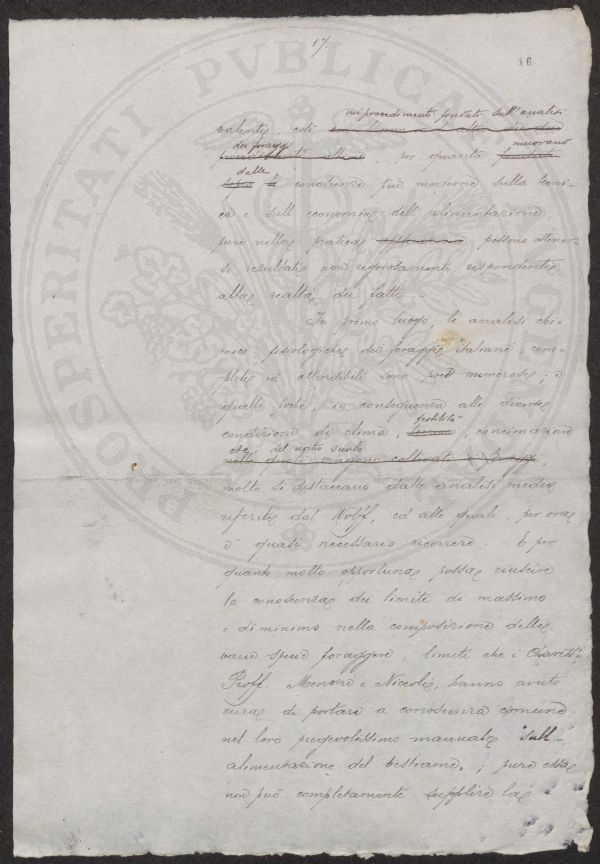 17.
16
PROSPERITATI PVBLICAE
nei procedimenti fondati sull'analisi
valente, così
dei foraggi
per quanto
muovano
dalle
conoscenze più moderne sulla tecni-
ca e sull'economia dell'alimentazione,
pure nella pratica possono ottener-
si resultati non rigorosamente rispondenti
alla realtà dei fatti.-
In primo luogo, le analisi chi-
mico-fisiologiche dei foraggi italiani, com-
plete ed attendibili sono poco numerose; e
quelle poche, in conseguenza alle diverse
fertilità
condizioni di clima, concimazioni
ecc. del nostro suolo
molto si distaccano dalle analisi medie
riferite dal Wolff, ed alle quali, per ora
è quasi necessario ricorrere. E per
quanto molto opportuna possa riuscire
la conoscenza dei limiti di massimo
e di minimo nella composizione delle
varie specie foraggere, limiti che i Chariss.i
Proff. Menozzi e Niccoli, hanno avuto
cura di portare a conoscenza comune
nel loro pregevolissimo manuale sull-
alimentazione del bestiame,; pure essa
non può completamente supplire la